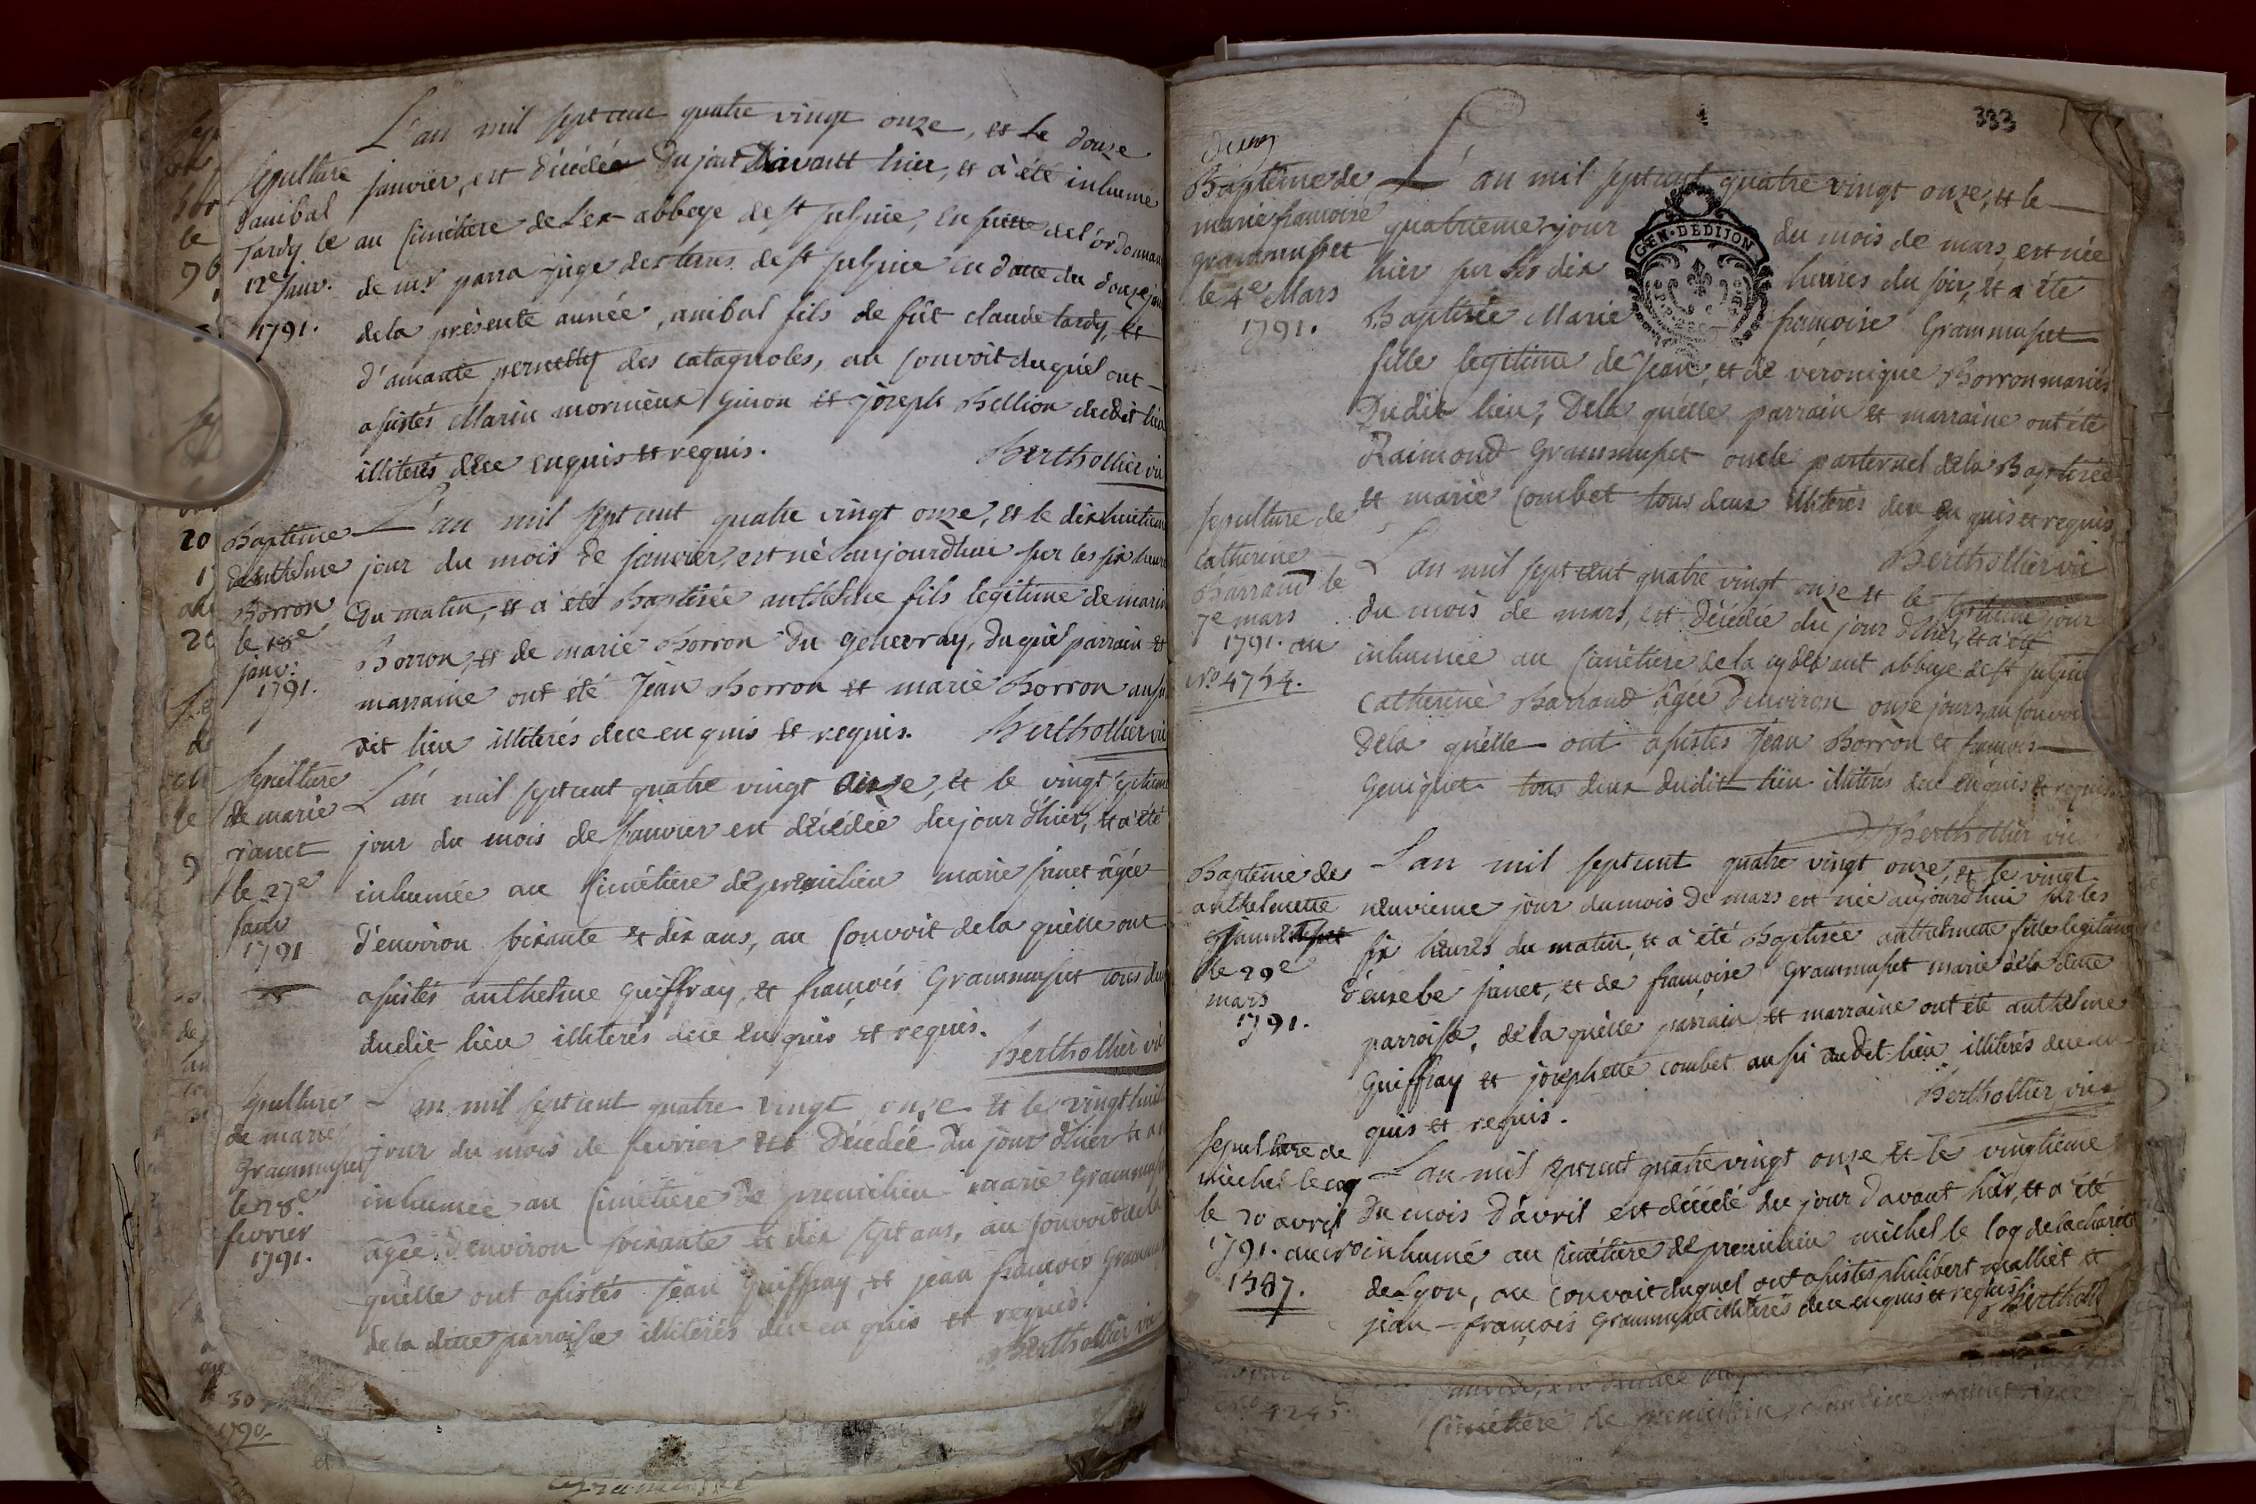 L'an mil sept cent quatre vingt onze, et le douze
Sepulture
d'anibal
Tardy le
12e janv.
1791.
janvier, est décédé du jour d'avantt hier, et a été inhumé
au cimetiere de l'ex-abbaye de st sulpice, en suitte de l'ordonnan
de mr parra juge des terres de st sulpice en datte du douze jan
de la présente année, anibal fils de fût claude tardy, et
d'amante pernetty des catagnoles, au convoit duquél ont
assistés Marin mornieux Ginon et joseph Bellion dudit lieu
illiterés de ce enquis et requis.
Berthollier vic
Baptême
d'anthelme
Borron
le 18e
janv.
1791.
L'an mil sept cent quatre vingt onze, et le dixhuitiem
jour du mois de janvier, est né aujourd'hui sur les six heures
du matin, et a été Baptisée anthelme fils legitime de marin
Borron, et de marie Borron du genevray, du quél parrain et
marraine ont été Jean Borron et marie Borron aussi
dit lieu illiterés de ce en quis et requis.
Berthollier vic
Sepulture
de marie
janet
le 27e
janv
1791
L'an mil sept cent quatre vingt onze, et le vingt septieme
jour du mois de janvier est décédée du jour d'hier, et a été
inhumée au cimétiere de premilieu marie janet âgée
d'environ soixante et dix ans, au convoit de la quèlle ont
assistés anthelme guiffray, et françois Grammusset tous deux
dudit lieu illiterés de ce en quis et requis.
Berthollier vic
Sepulture
de marie
Grammusset
le 28e
fevrier
1791.
L'an mil sept cent quatre vingt onze et le vingt huit
jour du mois de fevrier est décédée du jour d'hier et a
inhumée au cimetiere de premilieu marie Grammusset
âgée d'environ soixante et dix sept ans, au convoit de la
quèlle ont assistés jean guiffray, et jean françois Gramm
de la ditte parroisse illiterés de ce en quis et requis.
Berthollier vic
30
1790.
333
Baptême de
marie francoise
grammusset
le 4e Mars
1791.
L'an mil sept cent quatre vingt onze, et le
quatrieme jour du mois de mars, est née
GEN. DEDIJON
hier sur les dix heures du soir, et a été
Baptisée Marie françoise Grammusset
fille legitime de Jean, et de veronique Borron mariés
dudit lieu, de la quèlle parrain et marraine ont été
Raimond Grammusset oncle parternel de la Baptisée
et marie Combet tous deux illiterés de ce en quis et requis
Berthollier vic
Sepulture de
catherine
Barraud le
7e mars
1791. au
No 4754.
L'an mil sept cent quatre vingt onze et le septieme jour
du mois de mars, est décédée du jour d'hier, et a été
inhumée au cimétiere de la cydevant abbaye de st sulpice
Catherine Barraud âgée d'environ onze jours, au convoi
de la quèlle ont assistés Jean Borron et françois
Geniquet tous deux dudit lieu illiterés de ce enquis et requis.
Berthollier vic
Baptême de
anthelmette
janet
le 29e
mars
1791.
L'an mil sept cent quatre vingt onze, et le vingt
neuvieme jour du mois de mars est née aujourd'hui sur les
six heures du matin, et a été Baptisée anthelmette fille legitime
d'eusebe janet, et de françoise Grammusset marié de la ditte
parroisse, de la quèlle parrain et marraine ont été anthelme
Guiffray et josephette combet aussi dudit lieu illiterés de ce en
quis et requis.
Berthollier vic
Sepulture de
michel le coq
le 20 avril
1791. au No
1387.
L'an mil sept cent quatre vingt onze et le vingtieme
du mois d'avril est décédé du jour d'avant hier, et a été
inhumé au cimétiere de premilieu michel le coq de la charité
de Lyon, au convoit duquel ont assistés philibert malliet et
jean-françois Grammusset illiterés de ce enquis et requis.
Berthollier
4245.
cimétiere de premilieu